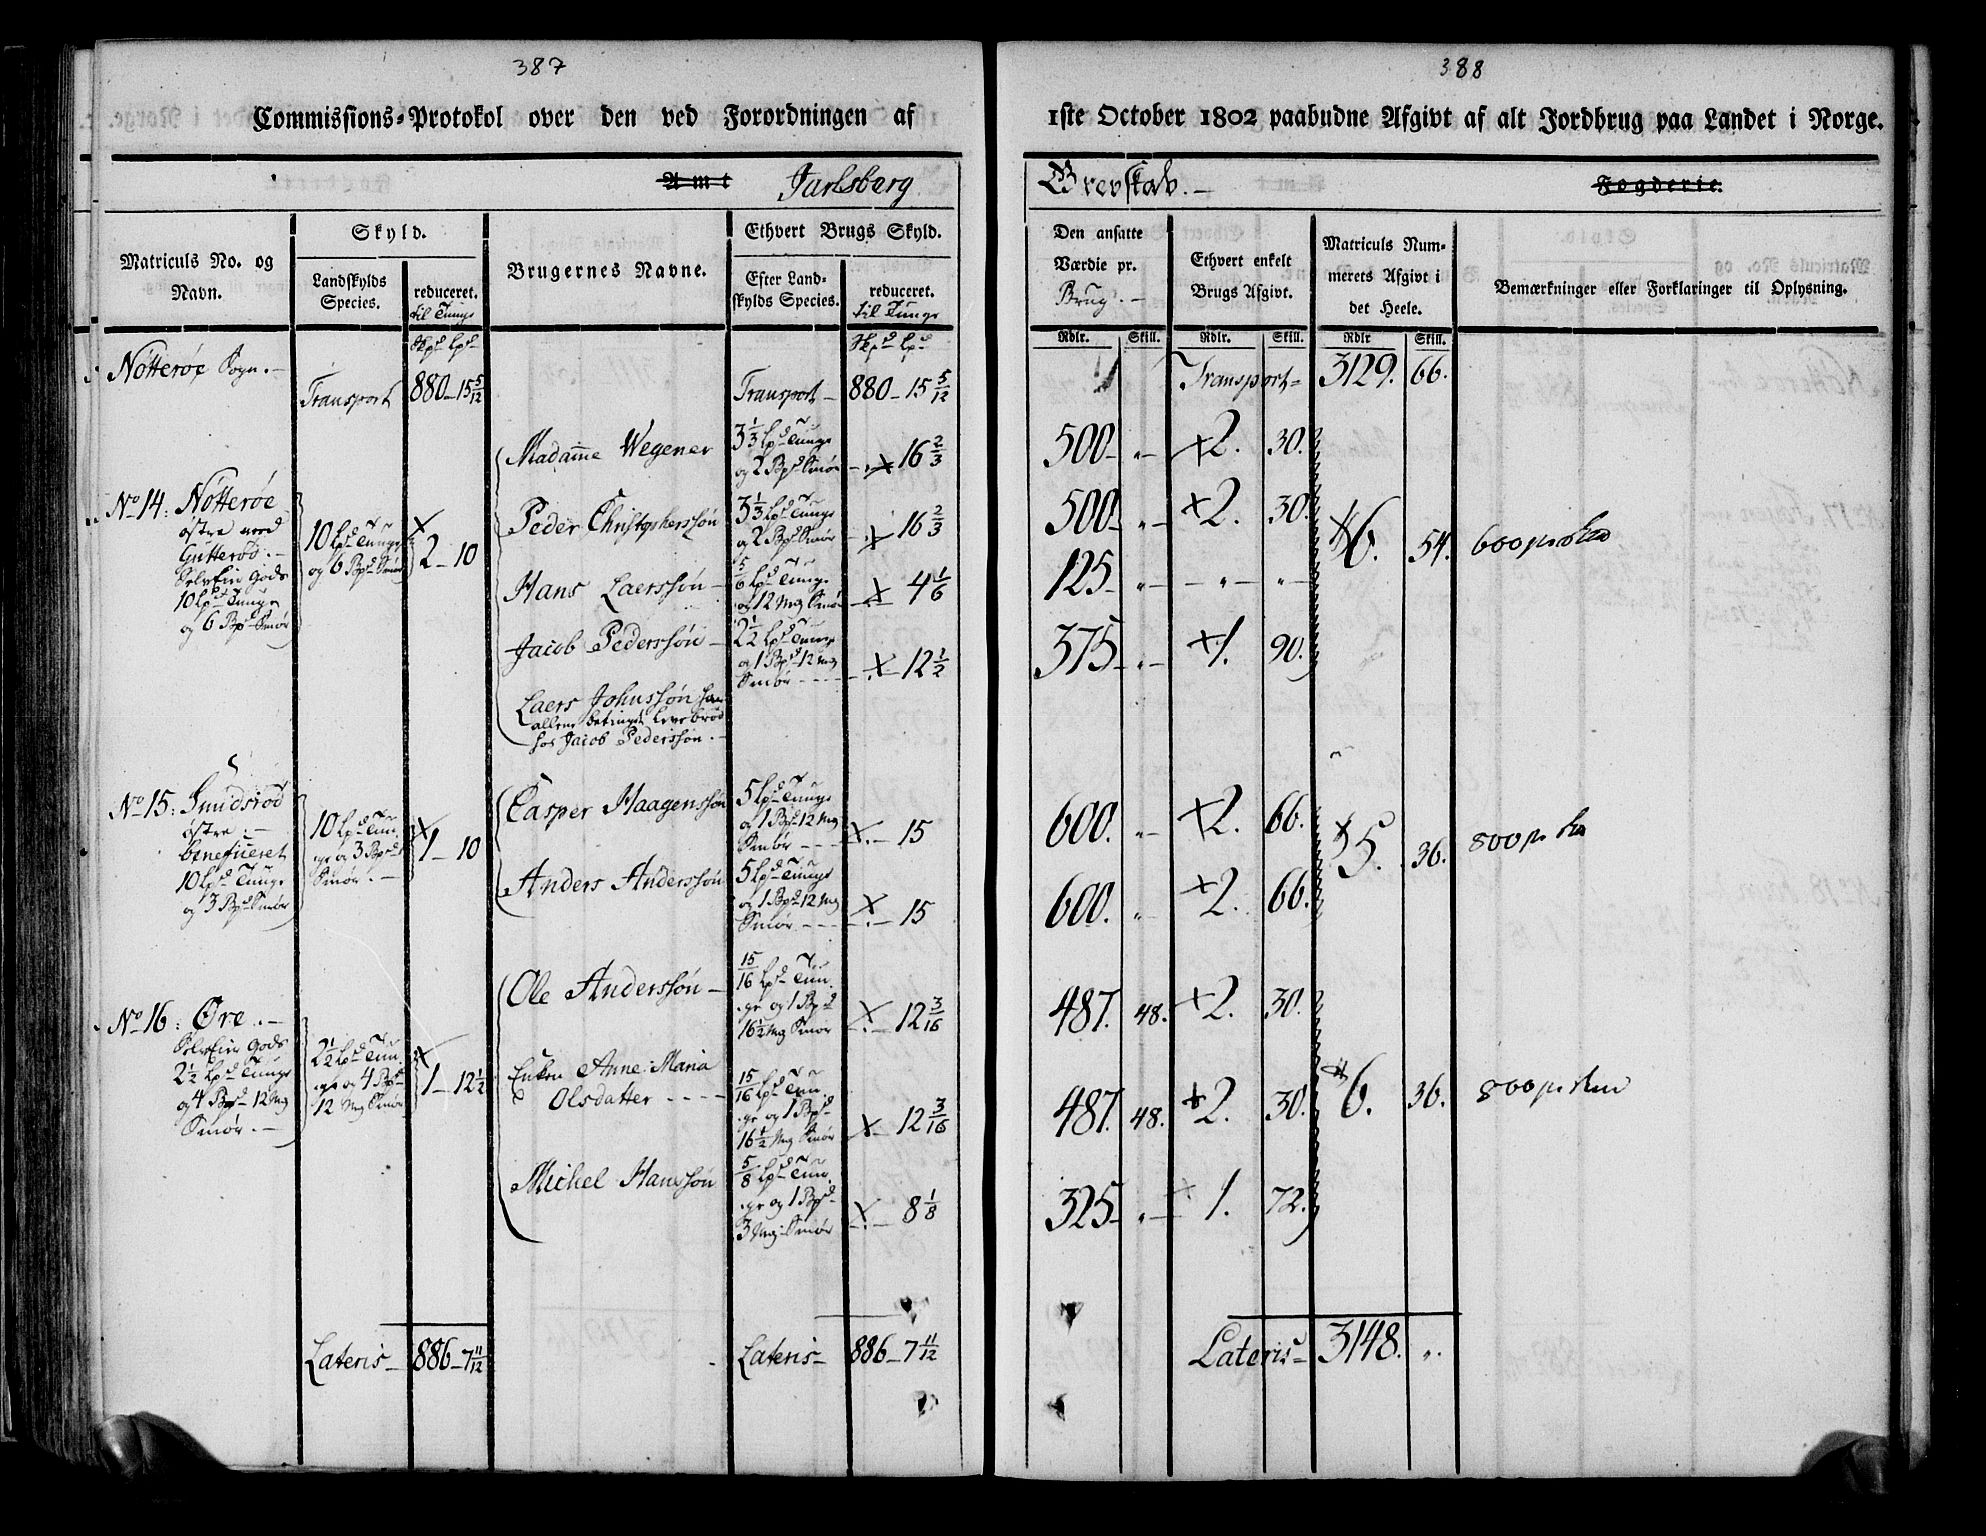 387
388
Commissions-Protokol over den ved Forordningen af
1ste October 1802 paabudne Afgivt af alt Jordbrug paa Landet i Norge.
Amt Jarlsberg
Grevskab. Fogderie.
Matriculs No. og Navn.
Skyld.
Landskylds Species.
reduceret. til Tunge
Brugernes Navne.
Ethvert Brugs Skyld.
Efter Landskylds Species.
reduceret. til Tunge
Den ansatte Værdie pr. Brug.
Ethvert enkelt Brugs Afgivt.
Matriculs Nummerets Afgivt i det Heele.
Bemærkninger eller Forklaringer til Oplysning.
Skpd Lpd
Skpd Lpd
Rdlr. Skill. Rdlr. Skill. Rdlr Skill.
Nøtterøe Sogn.
Transport 880 - 15 5/12
Transport - 880 - 15 5/12
Transport 3129. 66.
No 14: Nøtterøe
østre med
Gutterød.
Selveier Gods
10 Lpd Tunge
og 6 Bpd Smør
10 Lpd Tunge
og 6 Bpd Smør
2 - 10
Madame Wegener
3 1/3 Lpd Tunge
og 2 Bpd Smør 16 2/3
500 - „ - 2. 30.
Peder Christophersøn
3 1/3 Lpd Tunge
og 2 Bpd Smør 16 2/3
500 - „ - 2. 30.
6. 54.
Hans Laerssøn
5/6 Lpd Tunge
og 12 Mg Smør 4 1/6
125 - „ - „ - „
Jacob Pederssøn
2 1/2 Lpd Tunge
og 1 Bpd 12 Mg
Smør 12 1/2
375 - „ - 1. 90.
Laers Johnssøn har
allene betinget Levebrød
hos Jacob Pederssøn.
No 15: Smidsrød
østre.
beneficeret
10 Lpd Tunge
og 3 Bpd Smør
10 Lpd Tun-
ge og 3 Bpd
Smør.
1 - 10
Casper Haagenssøn
5 Lpd Tunge
og 1 Bpd 12 Mg
Smør 15
600. „ 2. 66.
5. 36.
Anders Anderssøn
5 Lpd Tunge
og 1 Bpd 12 Mg
Smør 15
600. „ 2. 66.
No 16: Øre.
Selveier Gods
2 1/2 Lpd Tunge
og 4 Bpd 12 Mg
Smør.
2 1/2 Lpd Tun-
ge og 4 Bpd
12 Mg Smør
1 - 12 1/2
Ole Anderssøn
15/16 Lpd Tun-
ge og 1 Bpd
16 1/2 Mg Smør 12 3/16
487. 48. 2. 30.
Enken Anne Maria
Olsdatter
15/16 Lpd Tun-
ge og 1 Bpd
16 1/2 Mg Smør 12 3/16
487. 48. 2. 30.
6. 36.
Michel Hanssøn
5/8 Lpd Tun-
ge og 1 Bpd
3 Mg Smør 8 1/8
325 - „ 1. 72.
Lateris 886 - 7 11/12
Lateris 886 - 7 11/12
Lateris 3148. „.